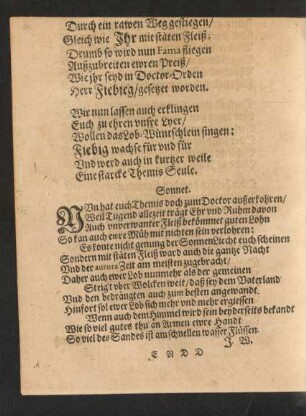 Durch ein rawen Weg gestiegen/
Gleich wie Ihr mit stäten Fleiß:
Drumb so wird nun Fama fliegen
Außzubreiten ewren Preiß/
Wie jhr seyd in Doctor-Orden
Herr Fiebieg/gesetzet worden.
Wir nun lassen auch erklingen
Euch zu ehren vnsre Lyer/
Wollen das Lob-Wüntschlein singen:
Fiebig wachse für vnd für
Vnd werd auch in kurtzer weile
Eine starcke Themis Seule.
Sonnet.
NVn hat euch Themis doch zum Doctor außerkohren/
Weil Tugend allezeit trägt Ehr vnd Ruhm davon
Auch vnverwarter Fleiß bekömmet guten Lohn
So kan auch ewre Müh mit nichten sein verlohren:
Es konte nicht genung der Sonnen Liecht euch scheinen
Sondern mit stäten Fleiß ward auch die gantze Nacht
Vnd der aurora Zeit am meisten zugebracht/
Daher auch ewer Lob nunmehr als der gemeinen
Steigt vber Wolcken weit/daß sey dem Vaterland
Vnd den bedrängten auch zum besten angewandt.
Hinfort sol ewer Lob sich mehr vnd mehr ergiessen
Wenn auch dem Himmel wird sein beyderseits bekandt
Wie so viel gutes thu' an Armen ewre Handt
So viel des Sandes ist am schnellen wasser Flüssen.
J. W.
E N D D